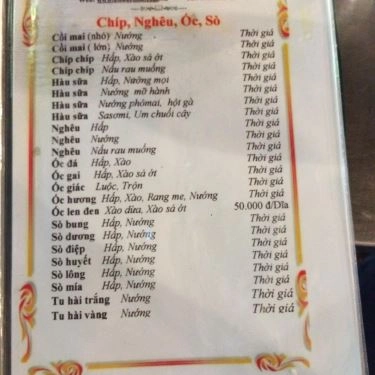 Chíp, Nghêu, Óc, Sò
Cồi mai (nhỏ) Nướng Thời giá
Cồi mai ( lớn) Nướng Thời giá
Chíp chíp Hấp, Xào sả ớt Thời giá
Chíp chíp Nấu rau muống Thời giá
Hàu sữa Hấp, Nướng mọi Thời giá
Hàu sữa Nướng mỡ hành Thời giá
Hàu sữa Nướng phômai, hột gà Thời giá
Hàu sữa Sasomi, Um chuối cây Thời giá
Nghêu Hấp Thời giá
Nghêu Nướng Thời giá
Nghêu Nấu rau muống Thời giá
Ốc đá Hấp, Xào Thời giá
Ốc gai Hấp, Xào sả ớt Thời giá
Ốc giác Luộc, Trộn Thời giá
Ốc hương Hấp, Xào, Rang me, Nướng Thời giá
Ốc len đen Xào dừa, Xào sả ớt 50.000 đ/Dĩa
Sò bung Hấp, Nướng Thời giá
Sò dương Hấp, Nướng Thời giá
Sò điệp Hấp, Nướng Thời giá
Sò huyết Hấp, Nướng Thời giá
Sò lông Hấp, Nướng Thời giá
Sò mía Hấp, Nướng Thời giá
Tu hài trắng Nướng Thời giá
Tu hài vàng Nướng Thời giá